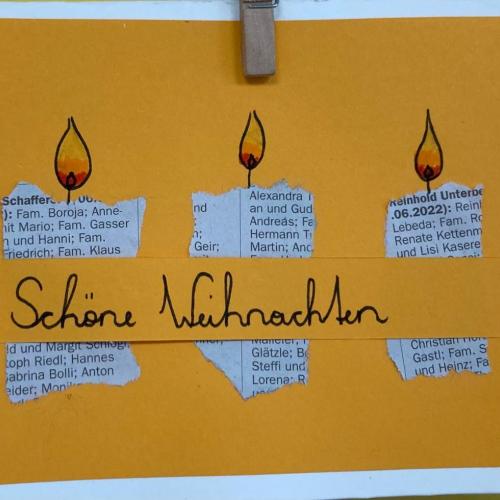 Schaffer
): Fam. Boroja; Anne-
nit Mario; Fam. Gasser
n und Hanni; Fam.
Friedrich; Fam. Klaus
nd
Geir;
Alexandra
an und Gud
Andreas; Fa
Hermann T
Martin; Anc
Reinhold Unterbe
.06.2022): Rein
Lebeda; Fam. Ro
Renate Kettenm
und Lisi Kasere
Schöne Weihnachten
ld und Margit Schlögl
toph Riedl; Hannes
Sabrina Bolli; Anton
eider;
Glätzle; B
Steffi und
Lorena; R
Christian
Gastl; Fam. S
und Heinz; Fa